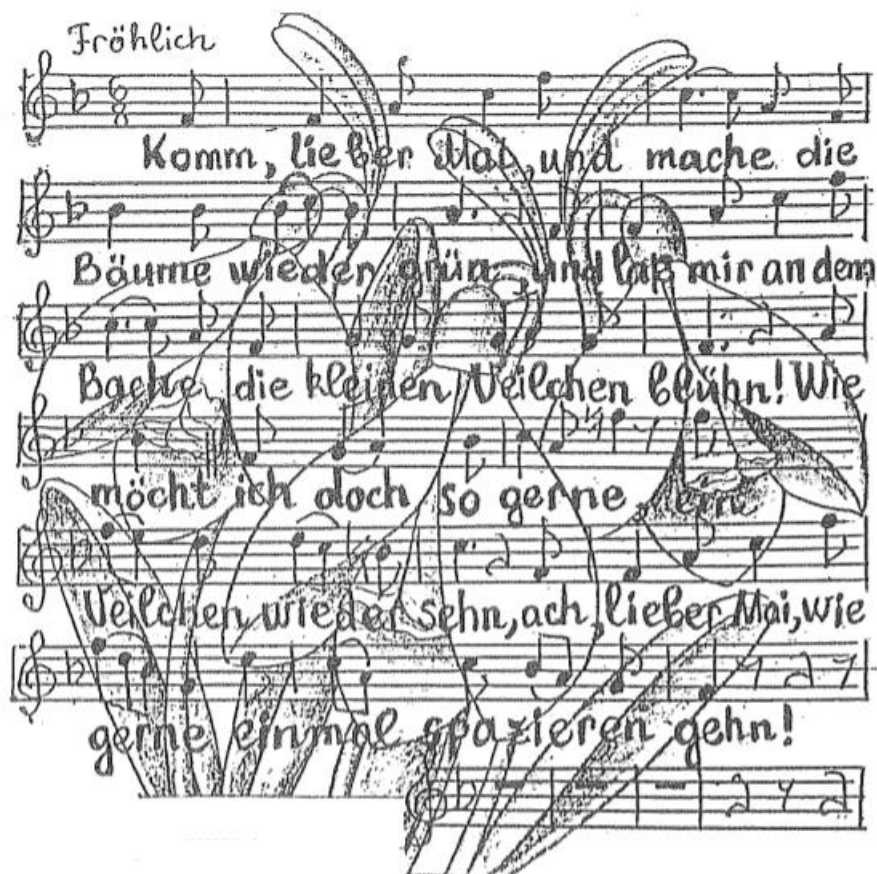 Fröhlich
6
8
Komm, lieber Mai, und mache die
Bäume wieder grün, und laß mir an dem
Bache die kleinen Veilchen blühn! Wie
möcht ich doch so gerne, ein
Veilchen wieder sehn, ach, lieber Mai, wie
gerne einmal spazieren gehn!